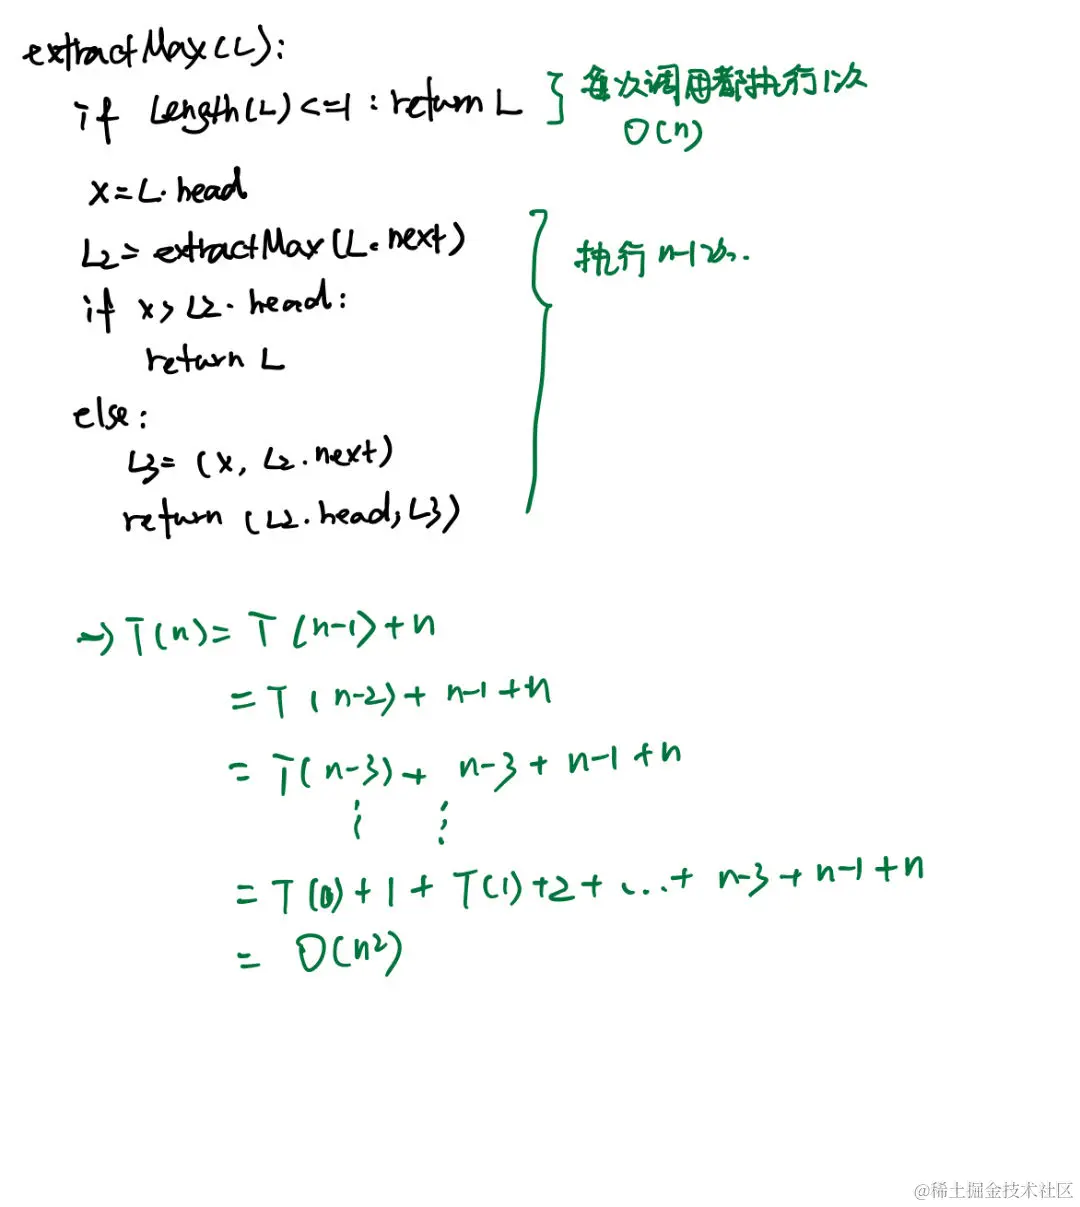 extractMax(L):
if Length(L)<=1 : return L
每次调用都执行1次
O(n)
x=L.head
L2= extractMax(L.next)
执行 n-1次.
if x> L2.head:
return L
else:
L3= (x, L2.next)
return (L2.head, L3)
→ T(n)= T(n-1)+n
= T(n-2)+ n-1+n
= T(n-3)+ n-3+ n-1+n
⋮ ⋮
= T(0)+1+ T(1)+2+...+ n-3+n-1+n
= O(n²)
@稀土掘金技术社区